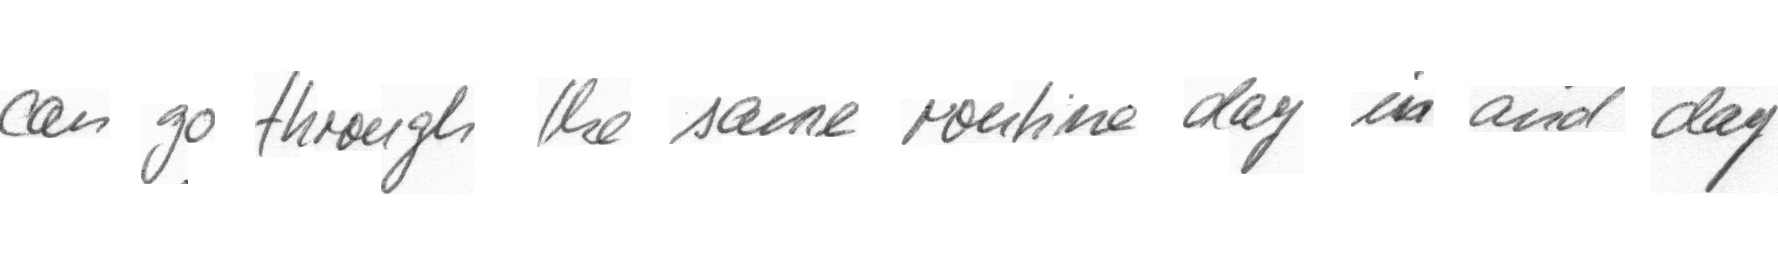 can go through the same routine day in and day